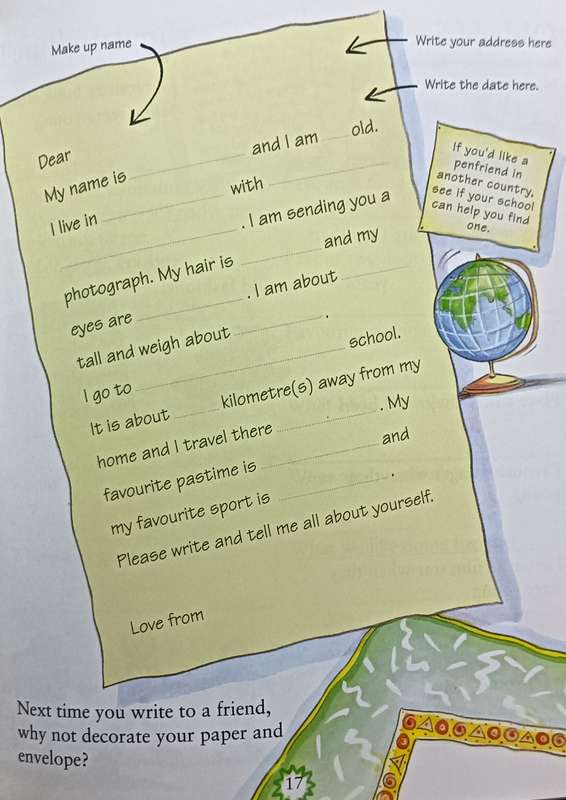 Make up name
Write your address here
Write the date here.
Dear
My name is and I am old.
I live in with
. I am sending you a
photograph. My hair is and my
eyes are . I am about
tall and weigh about .
I go to school.
It is about kilometre(s) away from my
home and I travel there . My
favourite pastime is and
my favourite sport is .
Please write and tell me all about yourself.
Love from
If you'd like a
penfriend in
another country,
see if your school
can help you find
one.
Next time you write to a friend,
why not decorate your paper and
envelope?
17